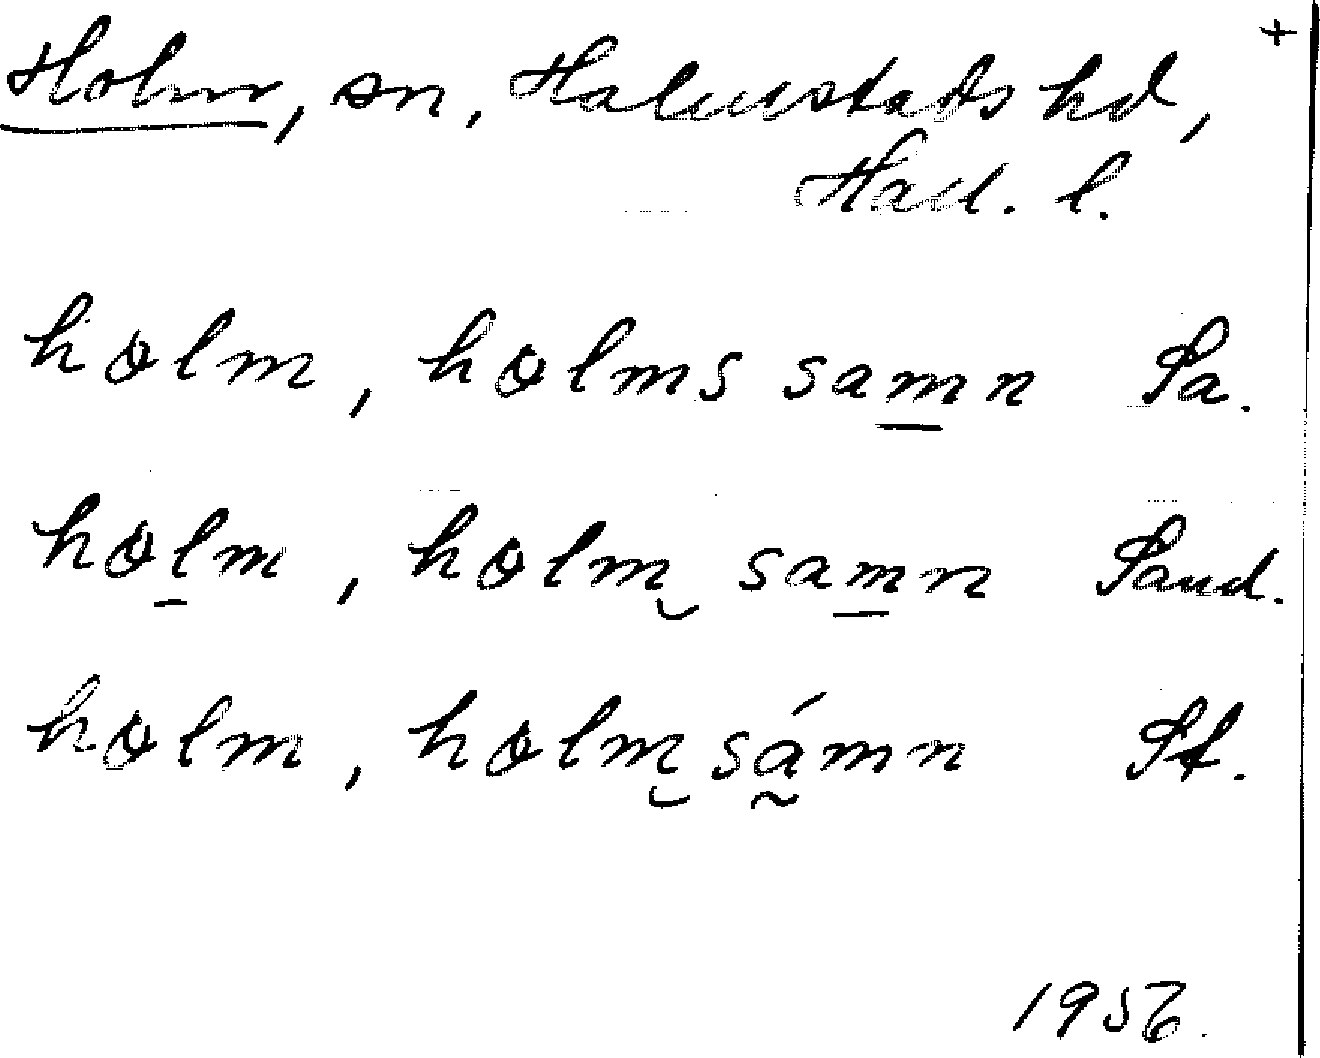 +
Holm, sn, Halmstads hd,
Hall. l.
holm, holms samn Sa.
holm, holm samn Sand.
holm, holm sámn St.
1956.